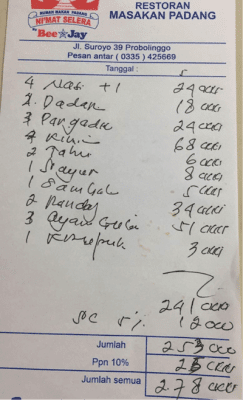 RESTORAN
MASAKAN PADANG
RUMAH MAKAN PADANG
NI'MAT SELERA
Bee Jay
Jl. Suroyo 39 Probolinggo
Pesan antar ( 0335 ) 425669
Tanggal :
4 Nasi +1 24 000
2. Dadar 18 000
3 24 000
68 000
2 Tahu 6 000
1 Sayur 8 000
1 Sambal 5 000
2 Rendang 34 000
3 Ayam Gulai 51 000
1 Kerupuk 3 000
241 000
SC 5% 12 000
Jumlah 253 000
Ppn 10% 25 000
Jumlah semua 278 000